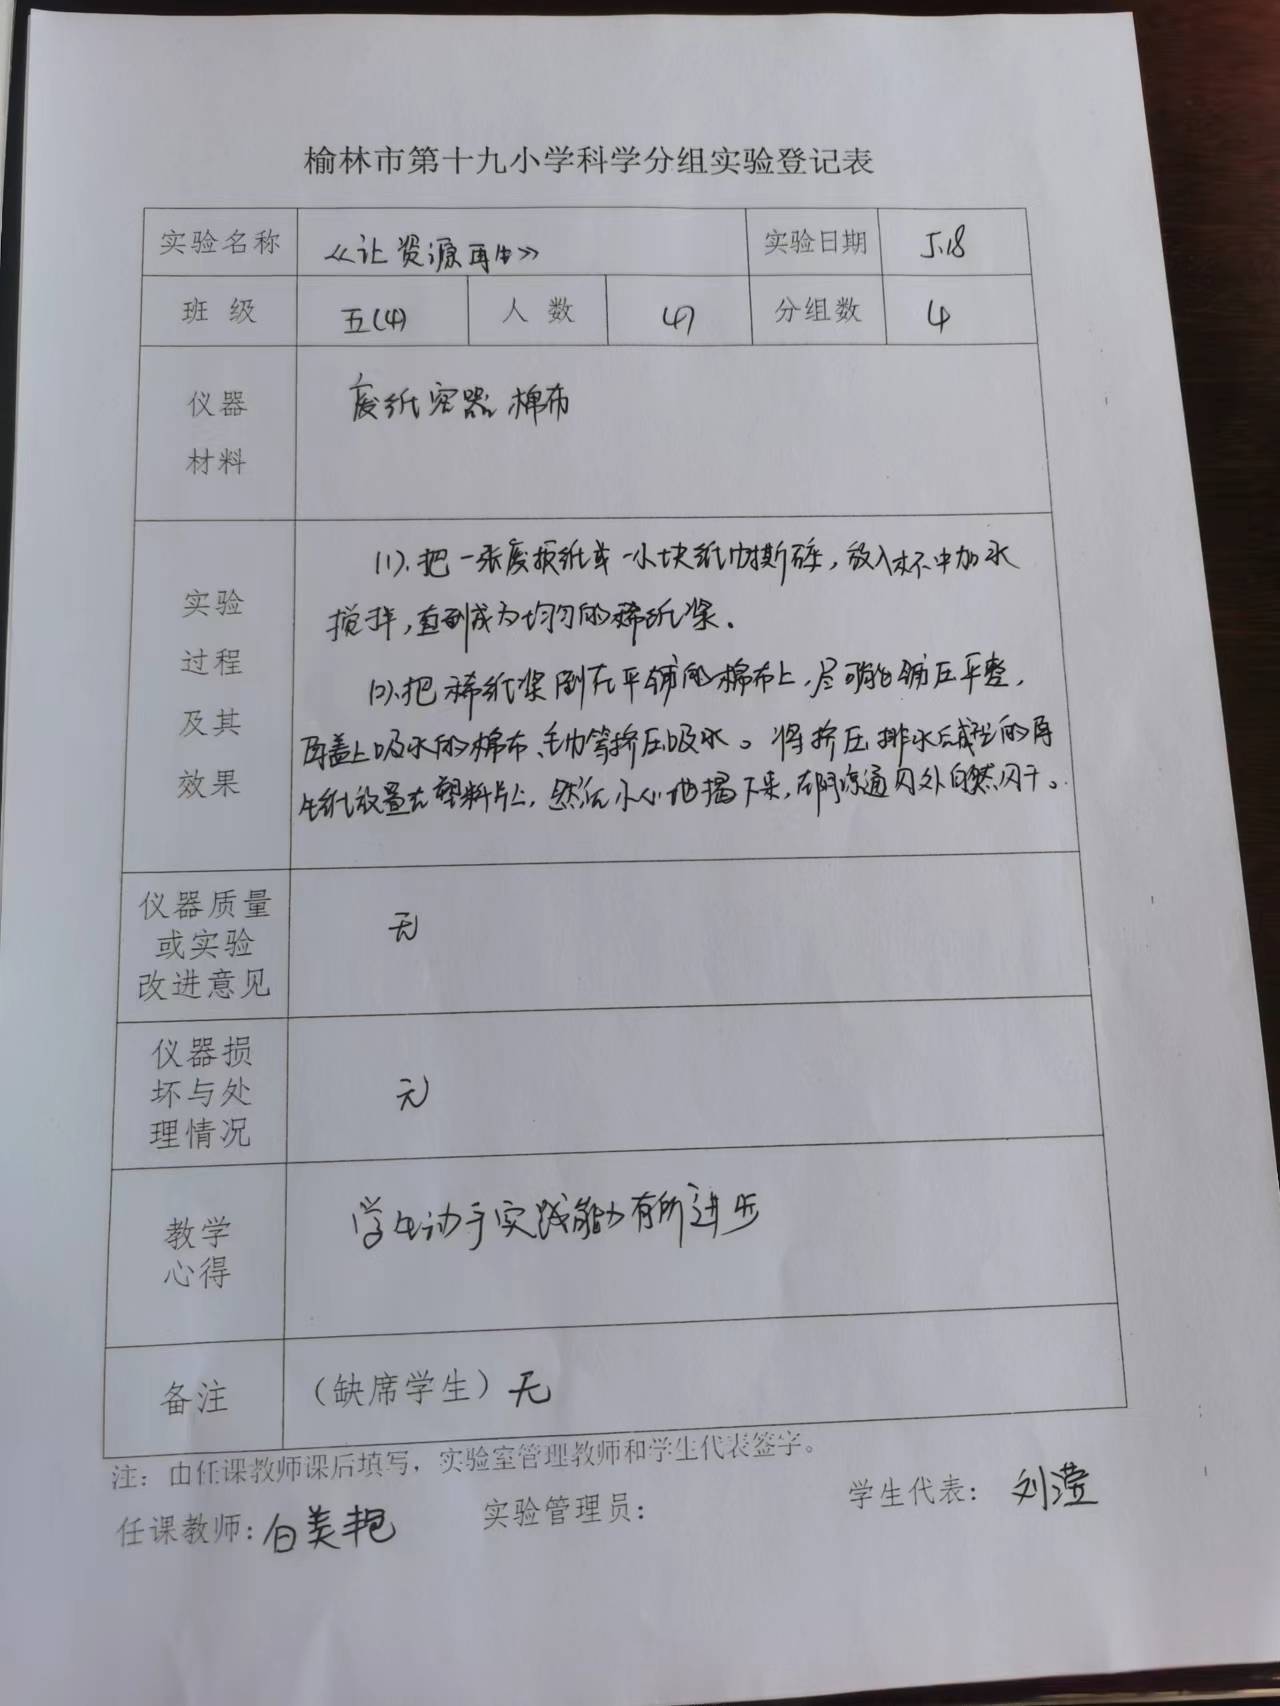 榆林市第十九小学科学分组实验登记表
实验名称 《让资源再生》 实验日期 5.18
班 级 五(4) 人 数 47 分组数 4
仪器
材料
废纸 容器 棉布
实验
过程
及其
效果
(1).把一张废报纸或一小块纸巾撕碎，放入杯中加水
搅拌，直到成为均匀的稀纸浆。
(2).把稀纸浆倒在平铺的棉布上，尽可能铺压平整，
再盖上吸水的棉布、毛巾等挤压吸水。将挤压排水后成型的再
生纸放置在塑料片上，然后小心地揭下来，在阴凉通风处自然风干。
仪器质量
或实验
改进意见
无
仪器损
坏与处
理情况
无
教学
心得
学生动手实践能力有所进步
备注 （缺席学生）无
注：由任课教师课后填写，实验室管理教师和学生代表签字。
任课教师：白美艳 实验管理员： 学生代表：刘滢